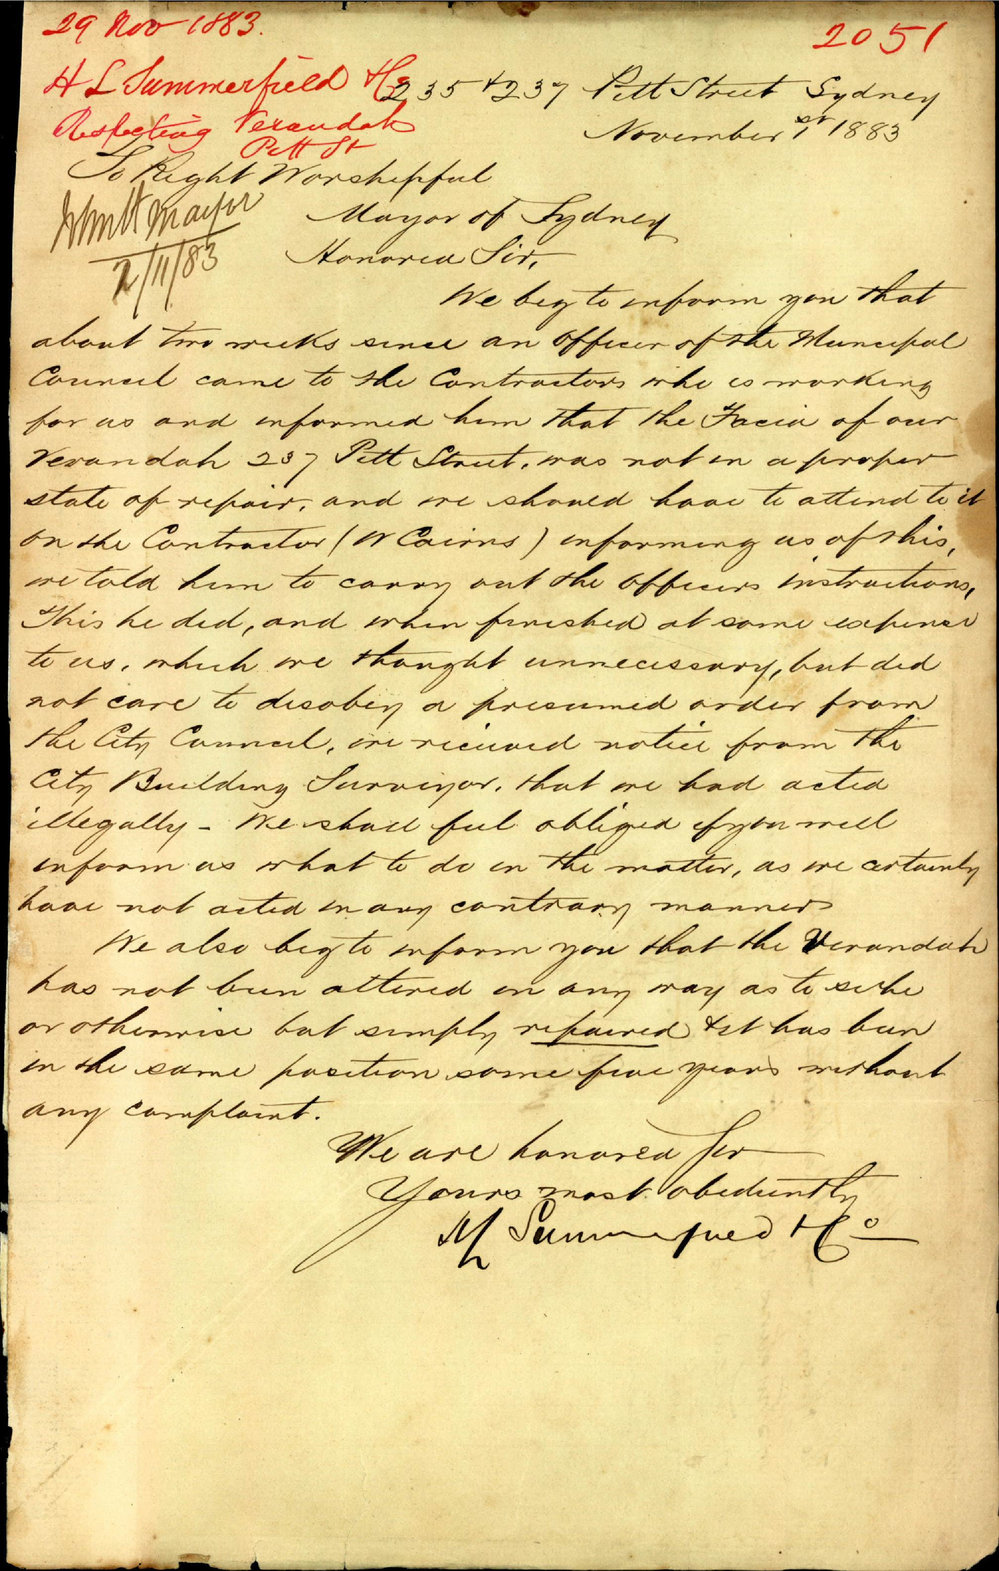 29 Nov 1883.
2051
H L Summerfield & Co
235 & 237 Pitt Street Sydney
Respecting Verandah
Pitt St
November 1st 1883
To Right Worshipful
Mayor of Sydney
Mayor
2/11/83
Honored Sir,
We beg to inform you that
about two weeks since an officer of the Municipal
Council came to the Contractors who is working
for us and informed him that the Facia of our
Verandah 237 Pitt Street, was not in a proper
state of repair, and we should have to attend to it
on the Contractor (W Cairns) informing us of this,
we told him to carry out the officers instructions,
this he did, and when finished at some expense
to us, which we thought unnecessary, but did
not care to disobey a presumed order from
the City Council, we received notice from the
City Building Surveyor, that we had acted
illegally - We shall feel obliged if you will
inform us what to do in the matter, as we certainly
have not acted in any contrary manner
We also beg to inform you that the Verandah
has not been altered in any way as to
or otherwise but simply repaired & it has been
in the same position some five years without
any complaint.
We are honored Sir
Yours most obediently
H L Summerfield & Co